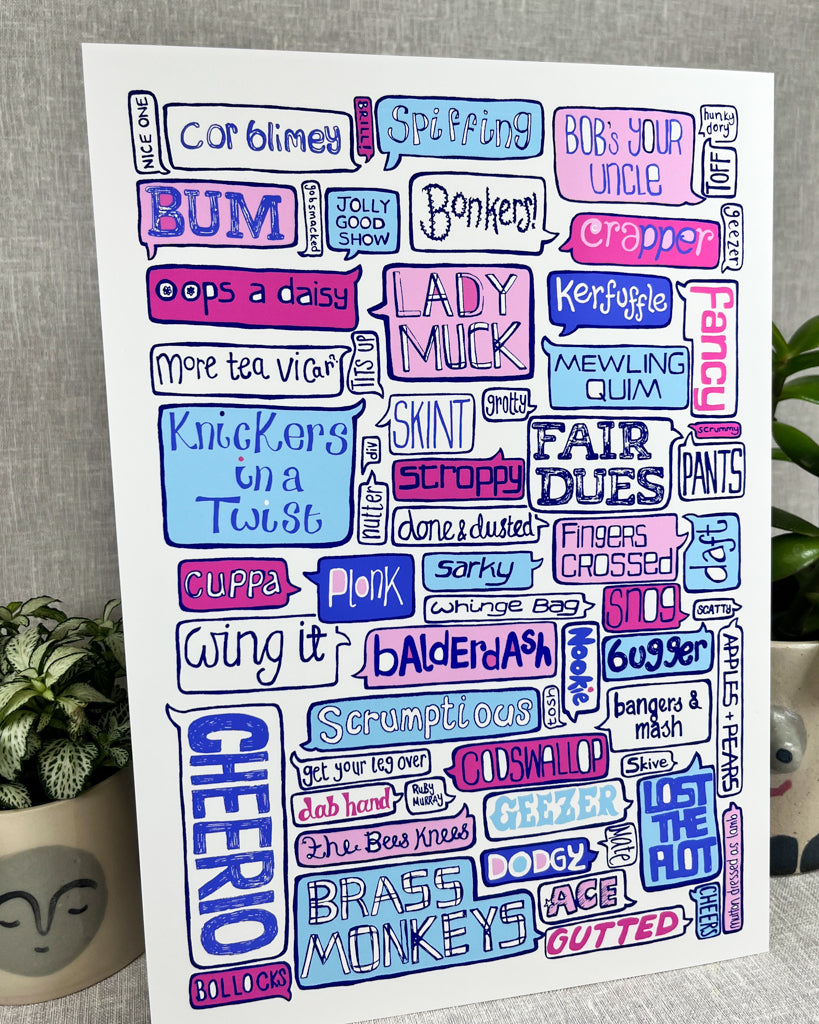 NICE ONE
cor blimey
BRILL!
Spiffing
BOB's YOUR
UNCLE
hunky
dory
TOFF
BUM
gobsmacked
JOLLY
GOOD
SHOW
Bonkers!
crapper
geezer
oops a daisy
LADY
MUCK
Kerfuffle
fancy
more tea vicar?
TITS UP
MEWLING
QUIM
Knickers
in a
Twist
SKINT
grotty
div
nutter
stroppy
FAIR
DUES
scrummy
PANTS
done & dusted
Fingers
CROSSED
daft
cuppa
PLONK
sarky
whinge Bag
snog
SCATTY
wing it
bAldErdAsh
Nookie
bugger
APPLES + PEARS
Scrumptious
TOSH
bangers &
mash
CHEERIO
get your leg over
CODSWALLOP
Skive
dab hand
RUBY
MURRAY
GEEZER
LOST
THE
PLOT
the Bees Knees
DODGY
Naff
mutton dressed as lamb
BRASS
MONKEYS
ACE
CHEERS
GUTTED
BOLLOCKS